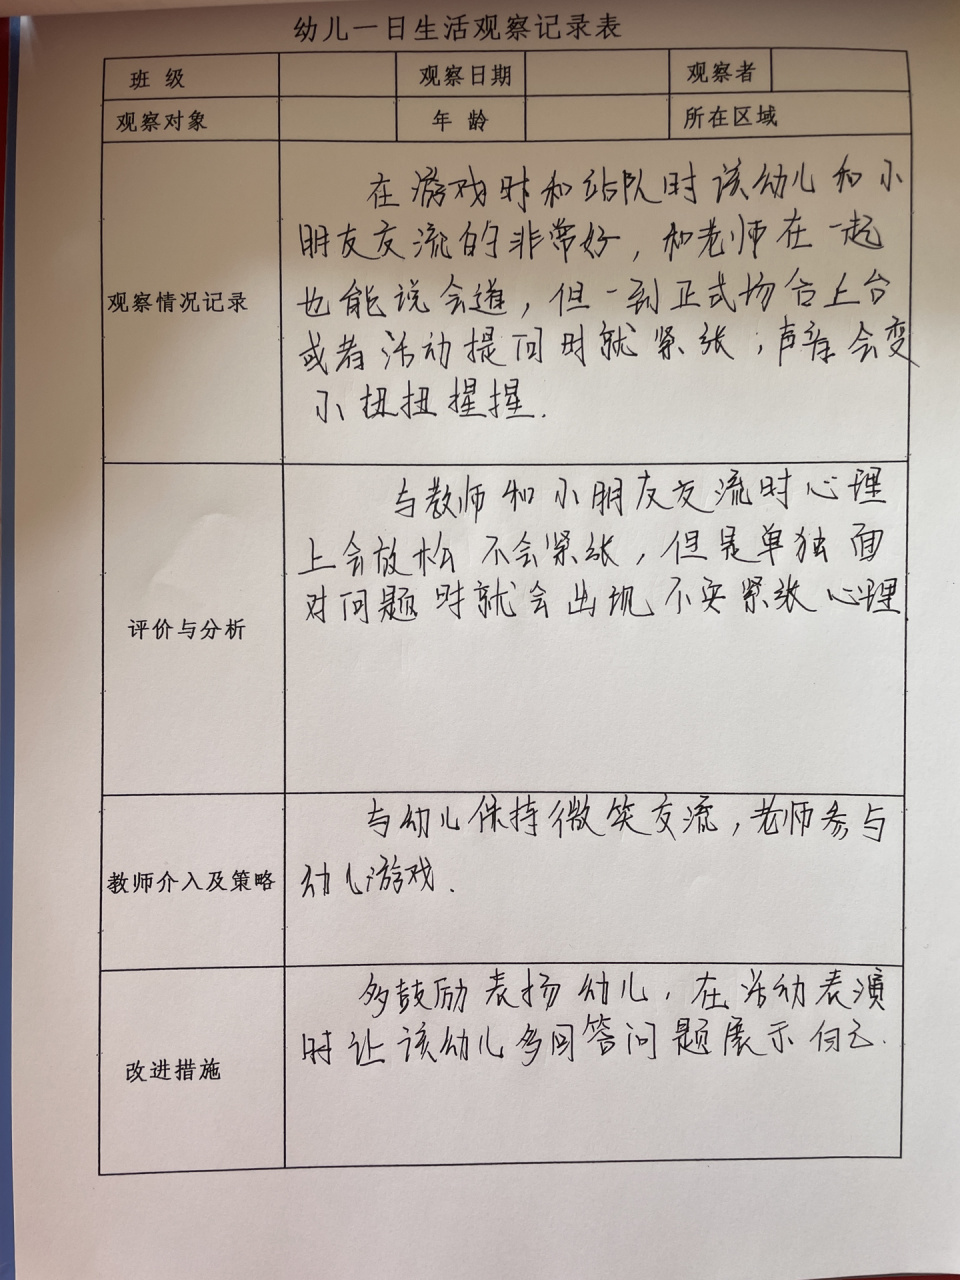 幼儿一日生活观察记录表
班 级 观察日期 观察者
观察对象 年 龄 所在区域
观察情况记录
在游戏时和站队时该幼儿和小
朋友交流的非常好，和老师在一起
也能说会道，但一到正式场合上台
或者活动提问时就紧张，声音会变
小扭扭捏捏.
评价与分析
与教师和小朋友交流时心理
上会放松 不会紧张，但是单独面
对问题时就会出现不安紧张心理
教师介入及策略
与幼儿保持微笑交流，老师参与
幼儿游戏.
改进措施
多鼓励表扬幼儿，在活动表演
时让该幼儿多回答问题展示自己.